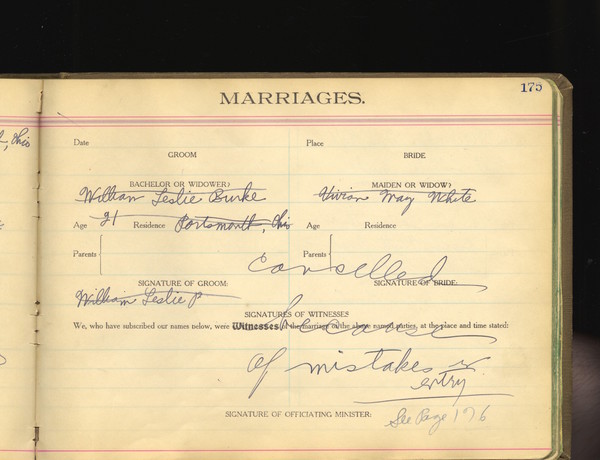 175
MARRIAGES.
Ohio
Date Place
GROOM BRIDE
BACHELOR OR WIDOWER? MAIDEN OR WIDOW?
William Leslie Burke Vivian May White
Age 21 Residence Portsmouth, Ohio Age Residence
Parents Parents
Cancelled
SIGNATURE OF GROOM: SIGNATURE OF BRIDE:
William Leslie P
SIGNATURES OF WITNESSES
We, who have subscribed our names below, were Witnesses of the marriage of the above named parties, at the place and time stated:
because
of mistakes in
entry
SIGNATURE OF OFFICIATING MINISTER: See Page 176